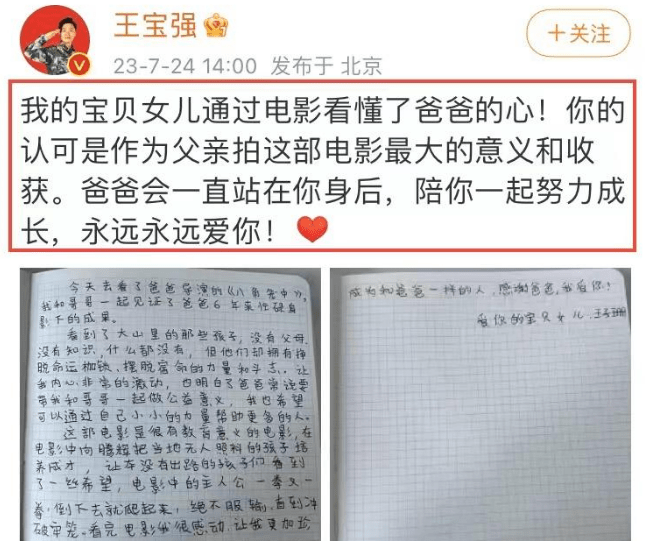 王宝强
+关注
23-7-24 14:00 发布于 北京
我的宝贝女儿通过电影看懂了爸爸的心！你的
认可是作为父亲拍这部电影最大的意义和收
获。爸爸会一直站在你身后，陪你一起努力成
长，永远永远爱你！
今天去看了爸爸导演的《八角笼中》。
我和哥哥一起见证了爸爸6年来忙碌身
影下的成果。
看到了大山里的那些孩子，没有父母，
没有知识，什么都没有，但他们却拥有挣
脱命运枷锁、摆脱宿命的力量和斗志。让
我内心非常的激动，也明白了爸爸常说要
带我和哥哥一起做公益意义，我也希望
可以通过自己小小的力量帮助更多的人。
这部电影是很有教育意义的电影，在
电影中向腾辉把当地无人照料的孩子培
养成才，让本没有出路的孩子们看到
了一丝希望，电影中的主人公一拳又一
拳，倒下去就爬起来，绝不服输，直到冲
破牢笼。看完电影我很感动，让我更加
成为和爸爸一样的人，感谢爸爸，我爱你！
爱你的宝贝女儿，王子珊